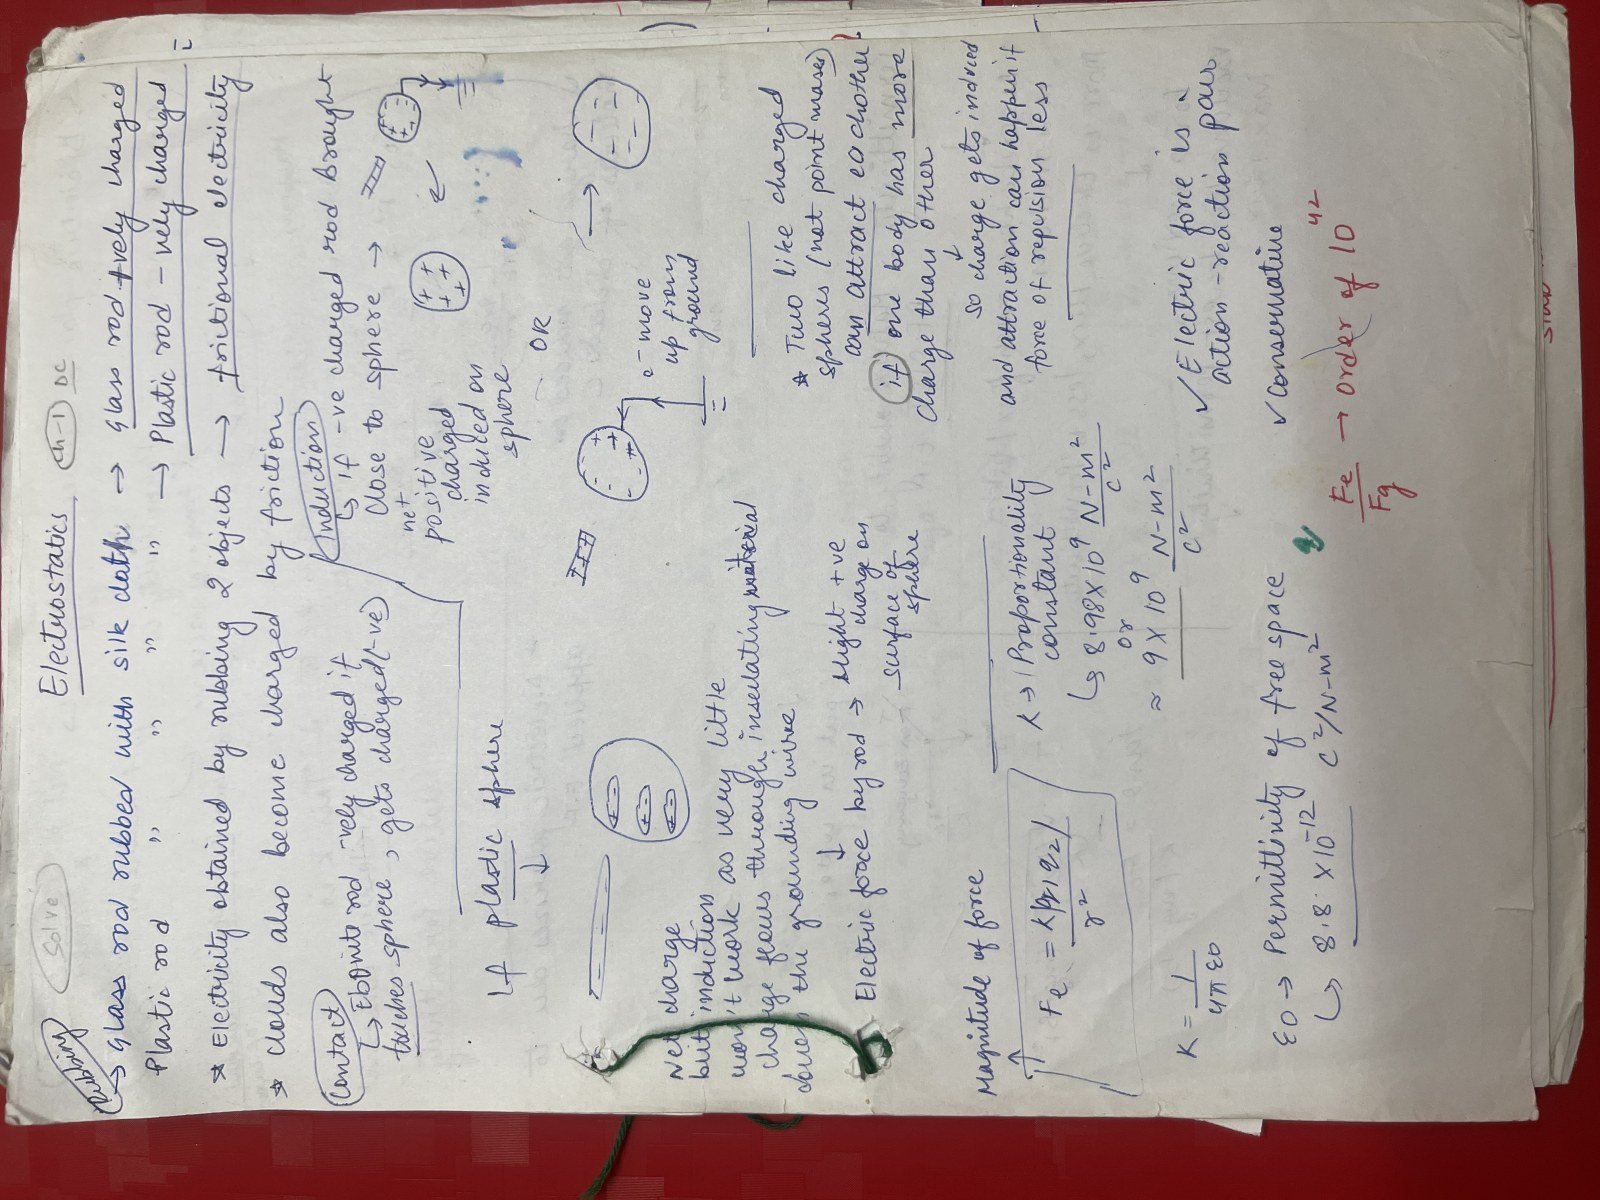 Electrostatics Ch-1 DC
Rubbing Solve
↳ Glass rod rubbed with silk cloth → Glass rod +vely charged
Plastic rod " " " " → Plastic rod -vely charged
* Electricity obtained by rubbing 2 objects → frictional electricity
* Clouds also become charged by friction
Contact
↳ Ebonite rod -vely charged if
touches sphere, gets charged (-ve)
Induction
↳ if -ve charged rod brought
close to sphere →
net
positive
charged
induced on
sphere
OR
e- move
up from
ground
If plastic sphere
↓
Net charge
but induction
won't work as very little
charge flows through insulating material
down the grounding wire
↓
Electric force by rod → slight +ve
charge on
surface of
sphere
* Two like charged
spheres (not point masses)
can attract each other
if one body has more
charge than other
↓
so charge gets induced
and attraction can happen if
force of repulsion less
Magnitude of force
Fe = K|q1q2|/r²
K → Proportionality
constant
↳ 8.98 × 10⁹ N-m²/C²
or
≈ 9 × 10⁹ N-m²/C²
✓ Electric force is a
action-reaction pair
✓ Conservative
K = 1/4πε0
ε0 → Permittivity of free space
↳ 8.8 × 10⁻¹² C²/N-m²
Fe/Fg → order of 10⁴²